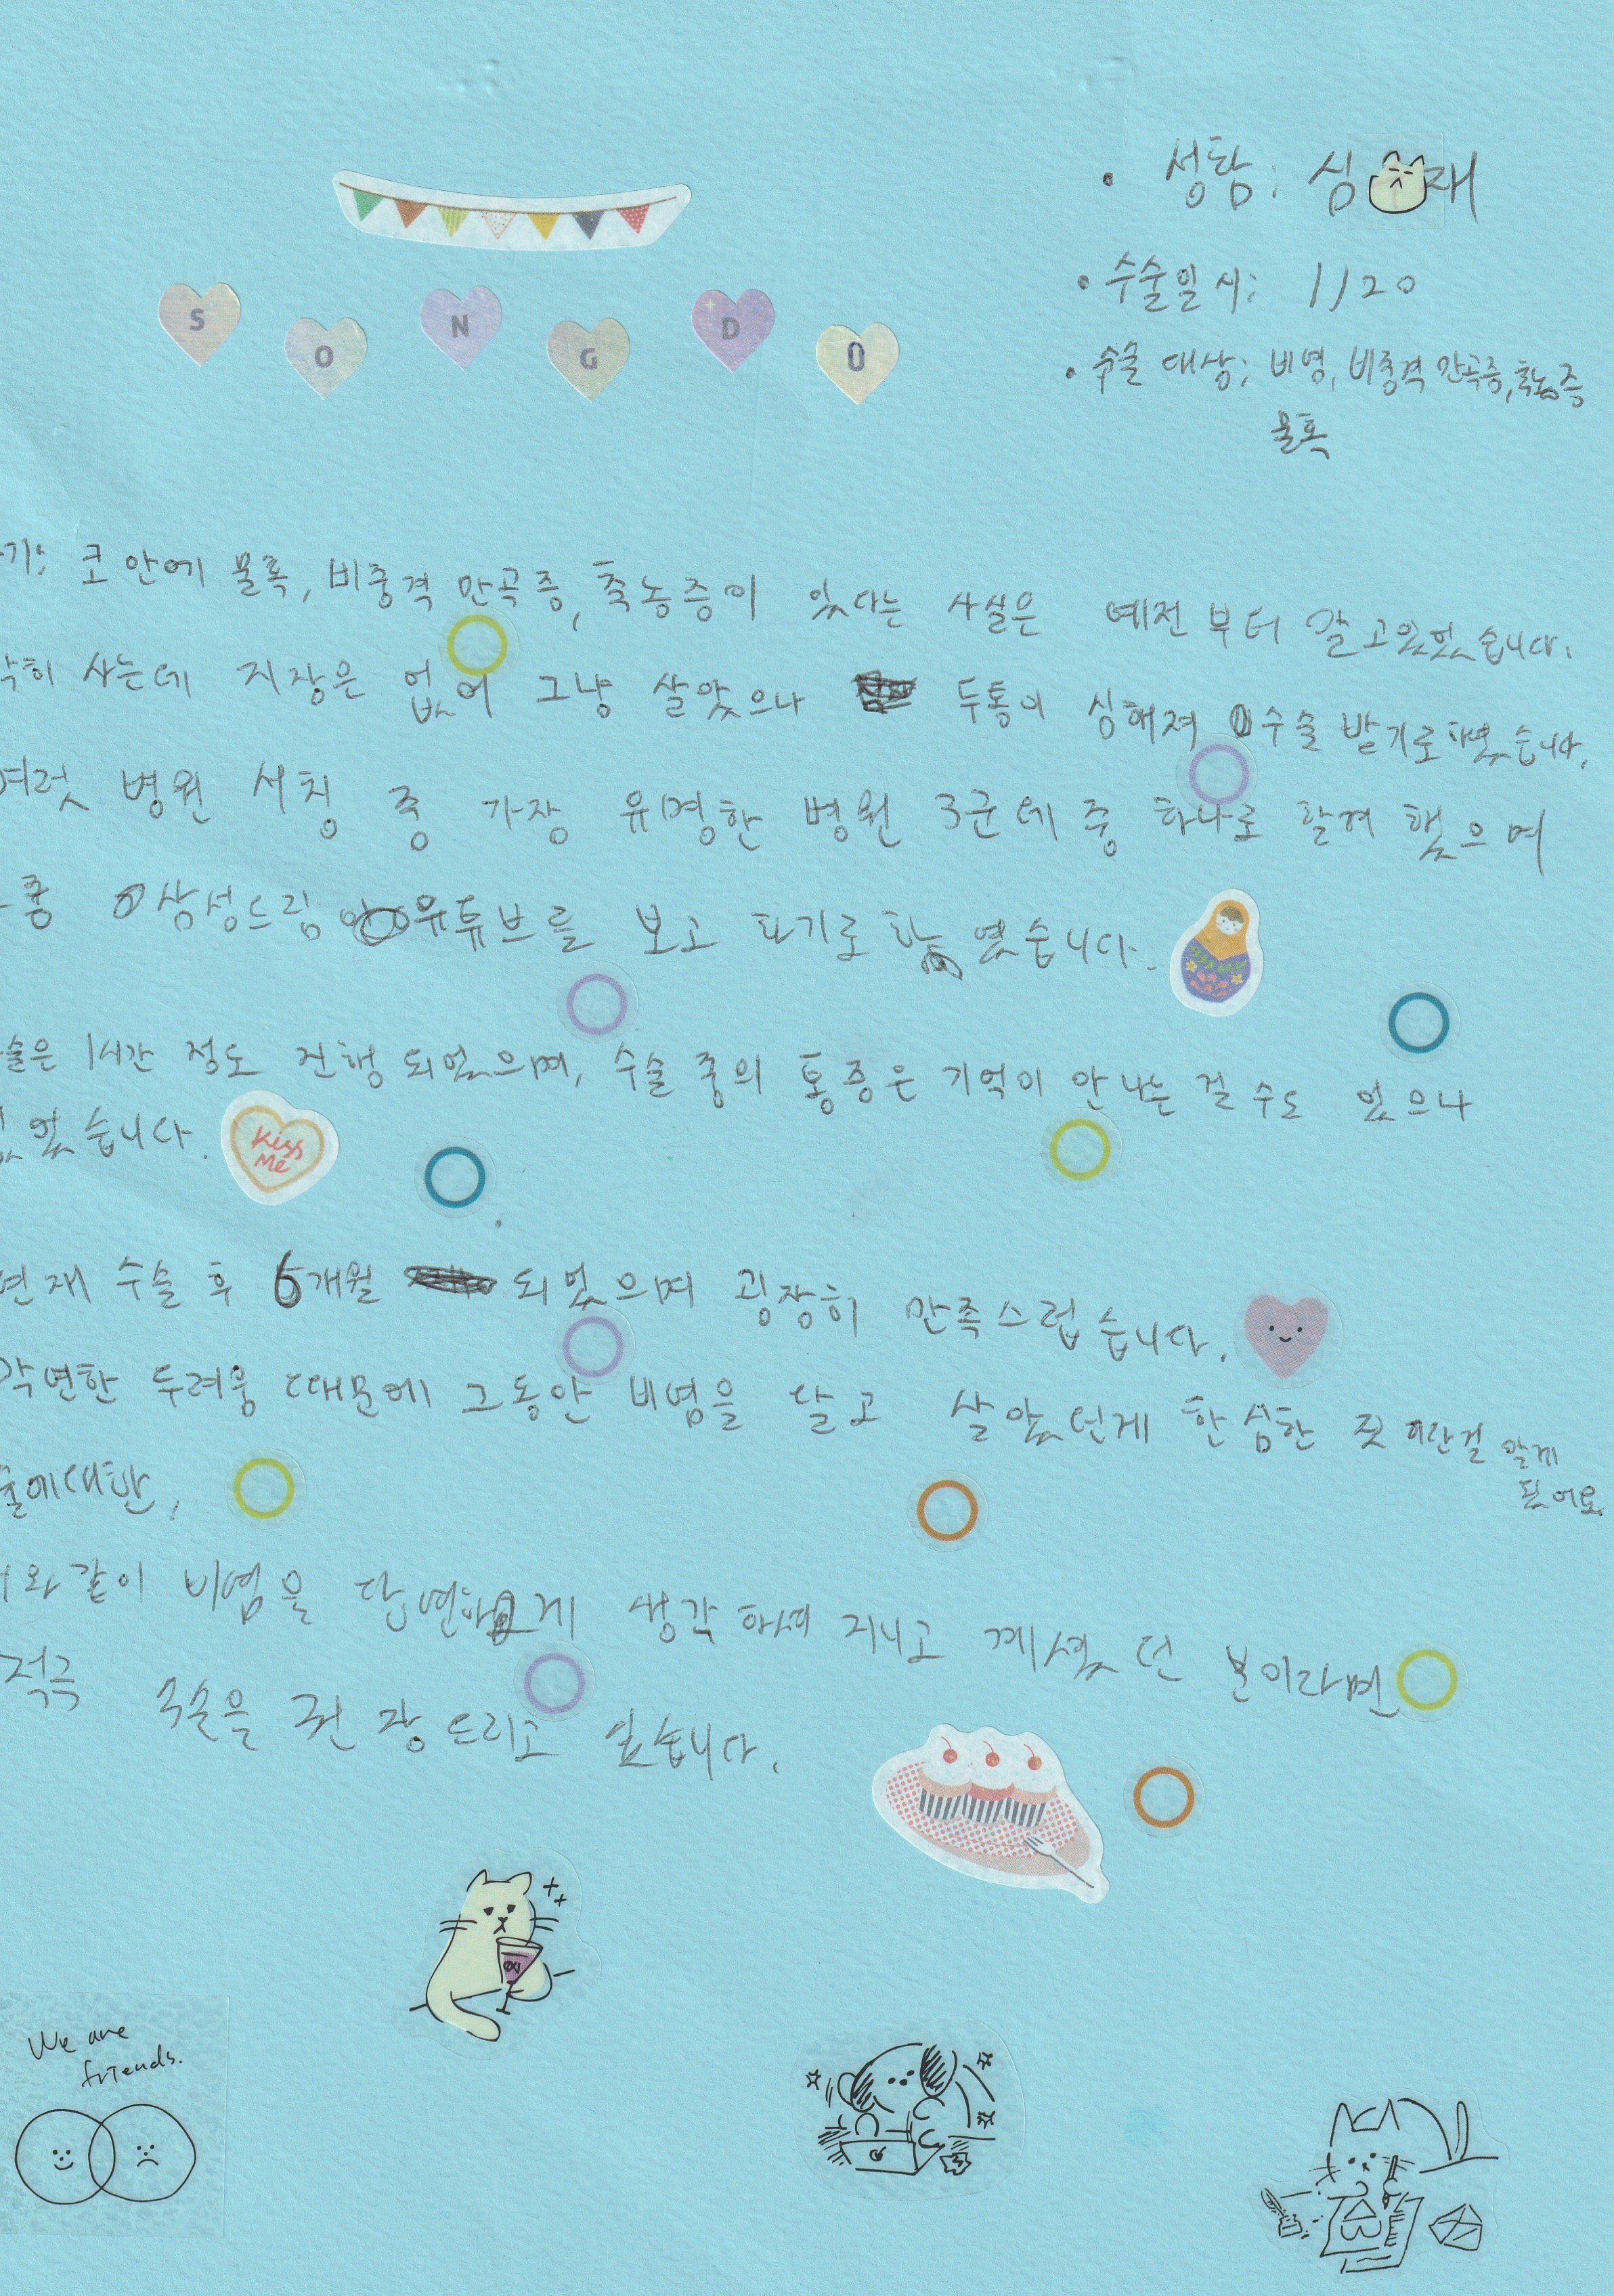 SONGDO
• 성함: 심 재
• 수술일시: 1/20
• 수술 대상: 비염, 비중격 만곡증, 축농증
물혹
기: 코 안에 물혹, 비중격 만곡증, 축농증이 있다는 사실은 예전부터 알고있었습니다.
히 사는데 지장은 없어 그냥 살았으나 두통이 심해져 수술 받기로 했습니다.
여럿 병원 서칭 중 가장 유명한 병원 3군데 중 하나로 할려 했으며
중 삼성드림 유튜브를 보고 하기로 하였습니다.
술은 1시간 정도 진행 되었으며, 수술 중의 통증은 기억이 안 나는 걸 수도 있으나
었습니다.
Kiss Me
현재 수술 후 6개월 되었으며 굉장히 만족스럽습니다.
막연한 두려움 때문에 그동안 비염을 달고 살았던게 한심한 짓 이란걸 알게
됐어요
술에대한,
와 같이 비염을 당연하게 생각하며 지내고 계셨던 분이라면
적극 수술을 권장드리고 싶습니다.
We are
friends.